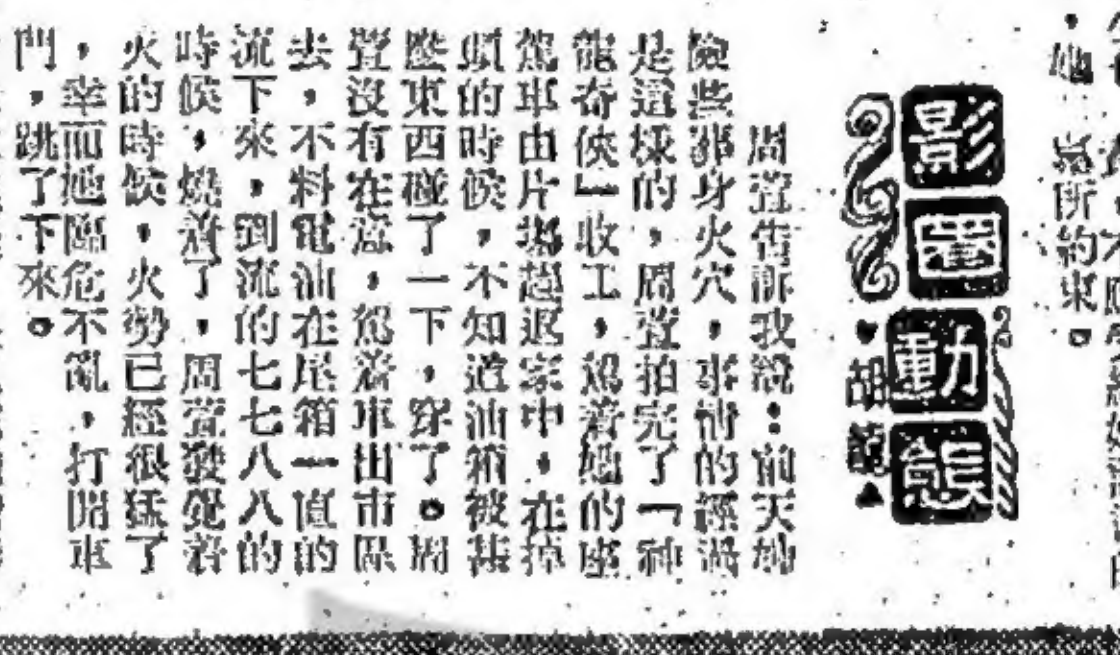 ，她
嵐所約束。
影圈動態
胡
周萱告訴我說：前天她
險些葬身火穴，事情的經過
是這樣的，周萱拍完了「神
龍奇俠」收工，駕着她的座
駕車由片場趕返家中，在掉
頭的時候，不知道油箱被甚
麼東西碰了一下，穿了。周
萱沒有在意，駕着車出市區
去，不料電油在尾箱一直的
流下來，到流的七七八八的
時候，燒着了，周萱發覺着
火的時候，火勢已經很猛了
，幸而她臨危不亂，打開車
門，跳了下來。